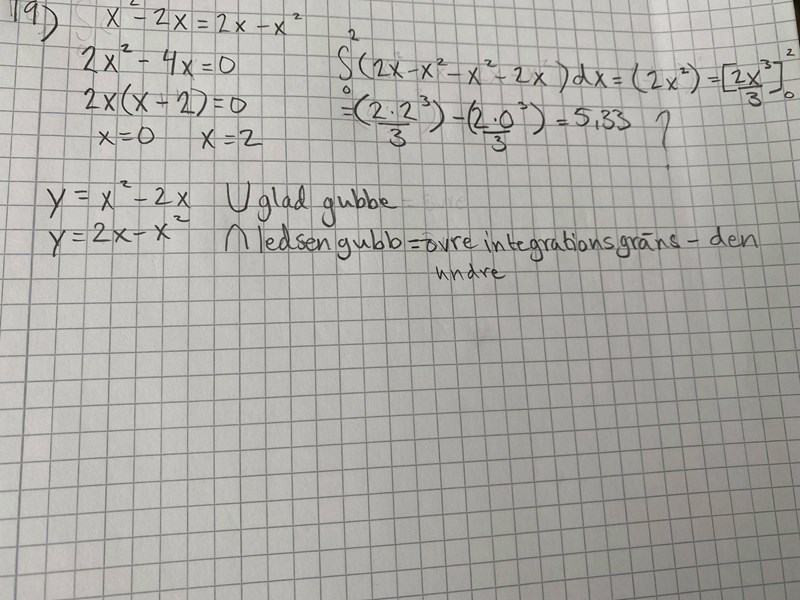 19) x² - 2x = 2x - x²
2x² - 4x = 0
2x(x - 2) = 0
x = 0 x = 2
∫₀² (2x - x² - x² - 2x) dx = (2x²) = [2x³/3]₀²
= (2·2³/3) - (2·0³/3) = 5,33 ?
y = x² - 2x U glad gubbe
y = 2x - x² ∩ ledsen gubb = övre integrationsgräns - den
undre